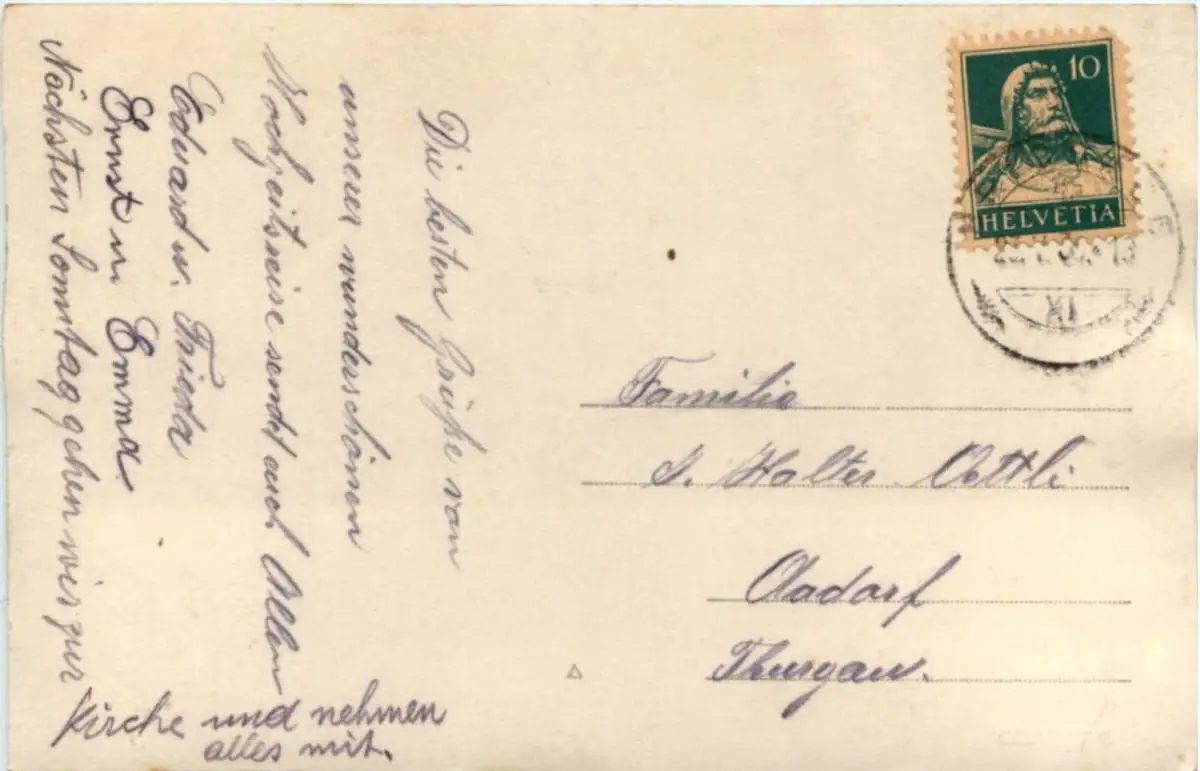 Die besten Grüße von
unserer wunderschönen
Hochzeitsreise sendet euch Allen
Eduard u. Frieda
Ernst u. Emma
Nächsten Sonntag gehen wir zur
Kirche und nehmen
alles mit.
10
HELVETIA
XI
Familie
J. Walter Oettli
Aadorf
Thurgau.